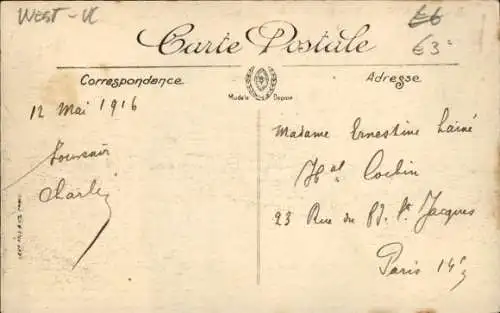 WEST - VL
£6
€3
Carte Postale
Correspondance
Adresse
Modèle Déposé
12 Mai 1916
Souvenir
Charles
Madame Ernestine Lainé
Hal Cochin
23 Rue du Fg St Jacques
Paris 14e